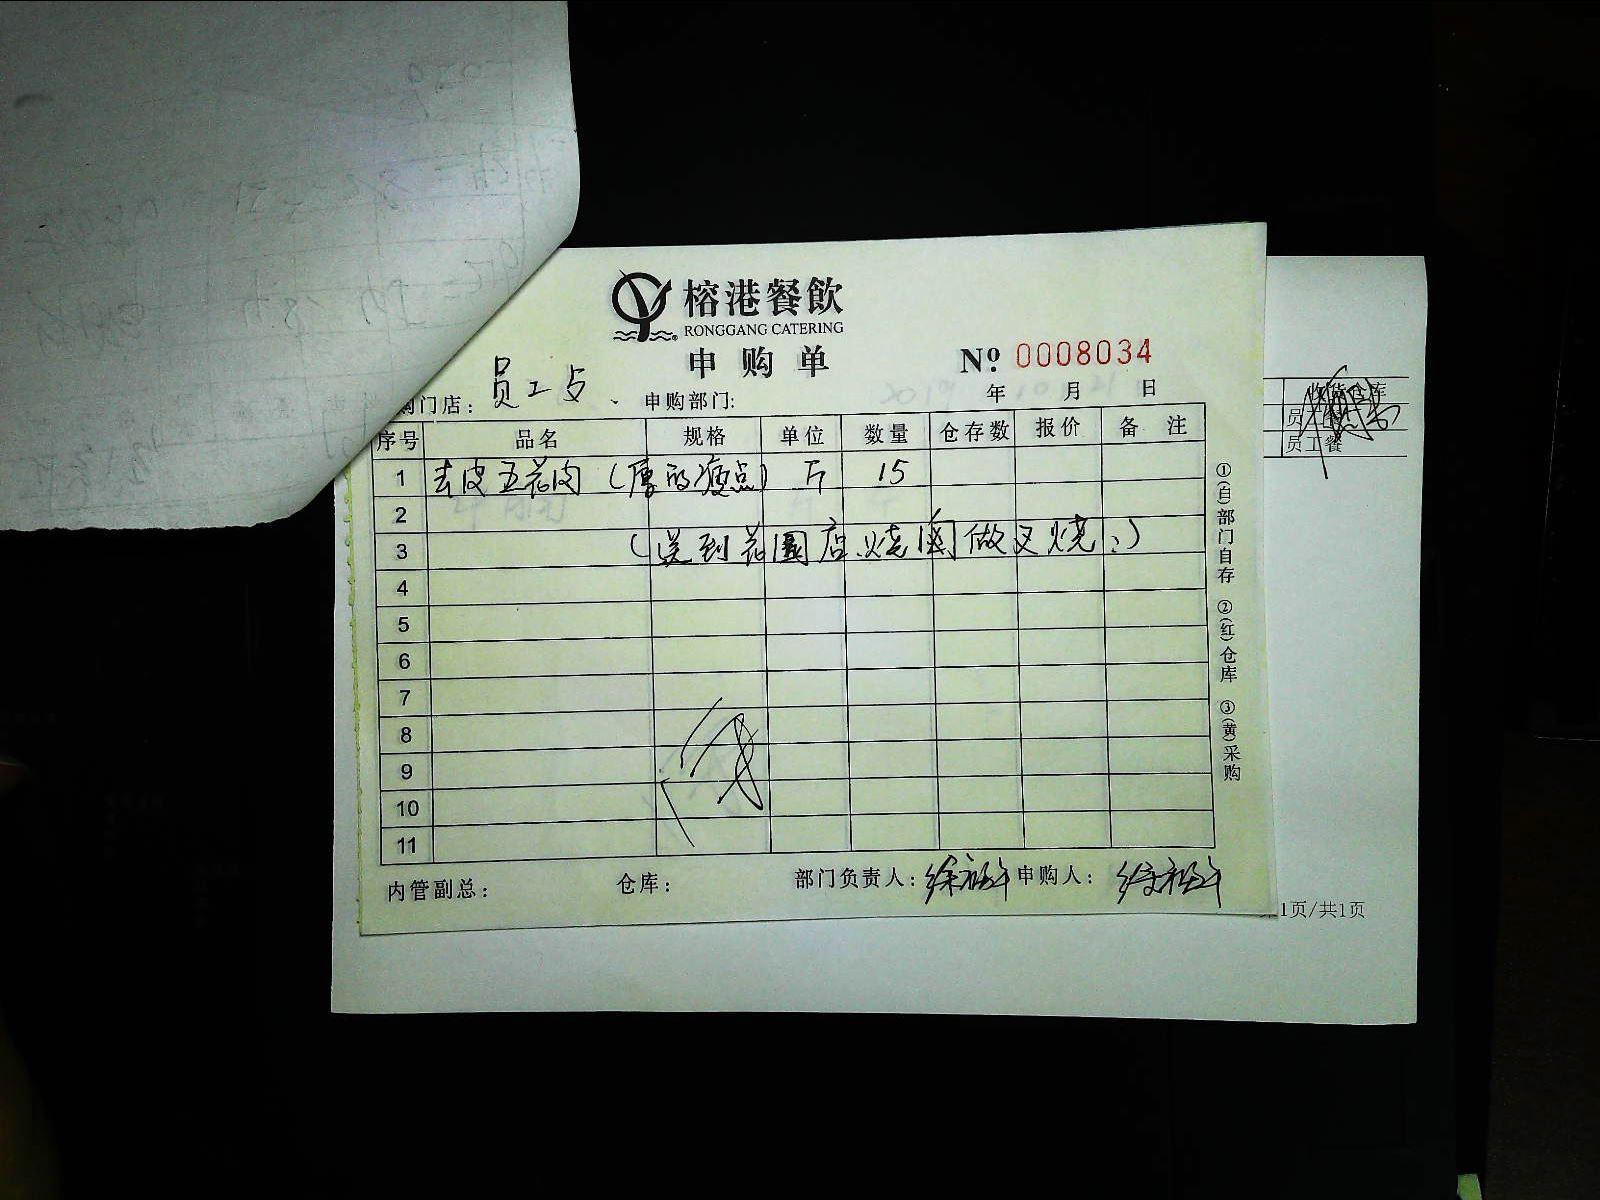 榕港餐飲
RONGGANG CATERING
申购单
№ 0008034
购门店： 员工 申购部门: 年 月 日
序号 品名 规格 单位 数量 仓存数 报价 备注
1 去皮五花肉 (厚的瘦点) 斤 15
2
3 (送到花園店烧 做叉烧)
4
5
6
7
8
9
10
11
①(白)部门自存 ②(红)仓库 ③(黄)采购
内管副总： 仓库： 部门负责人： 申购人：
收货仓库
员工餐
员工餐
1页/共1页